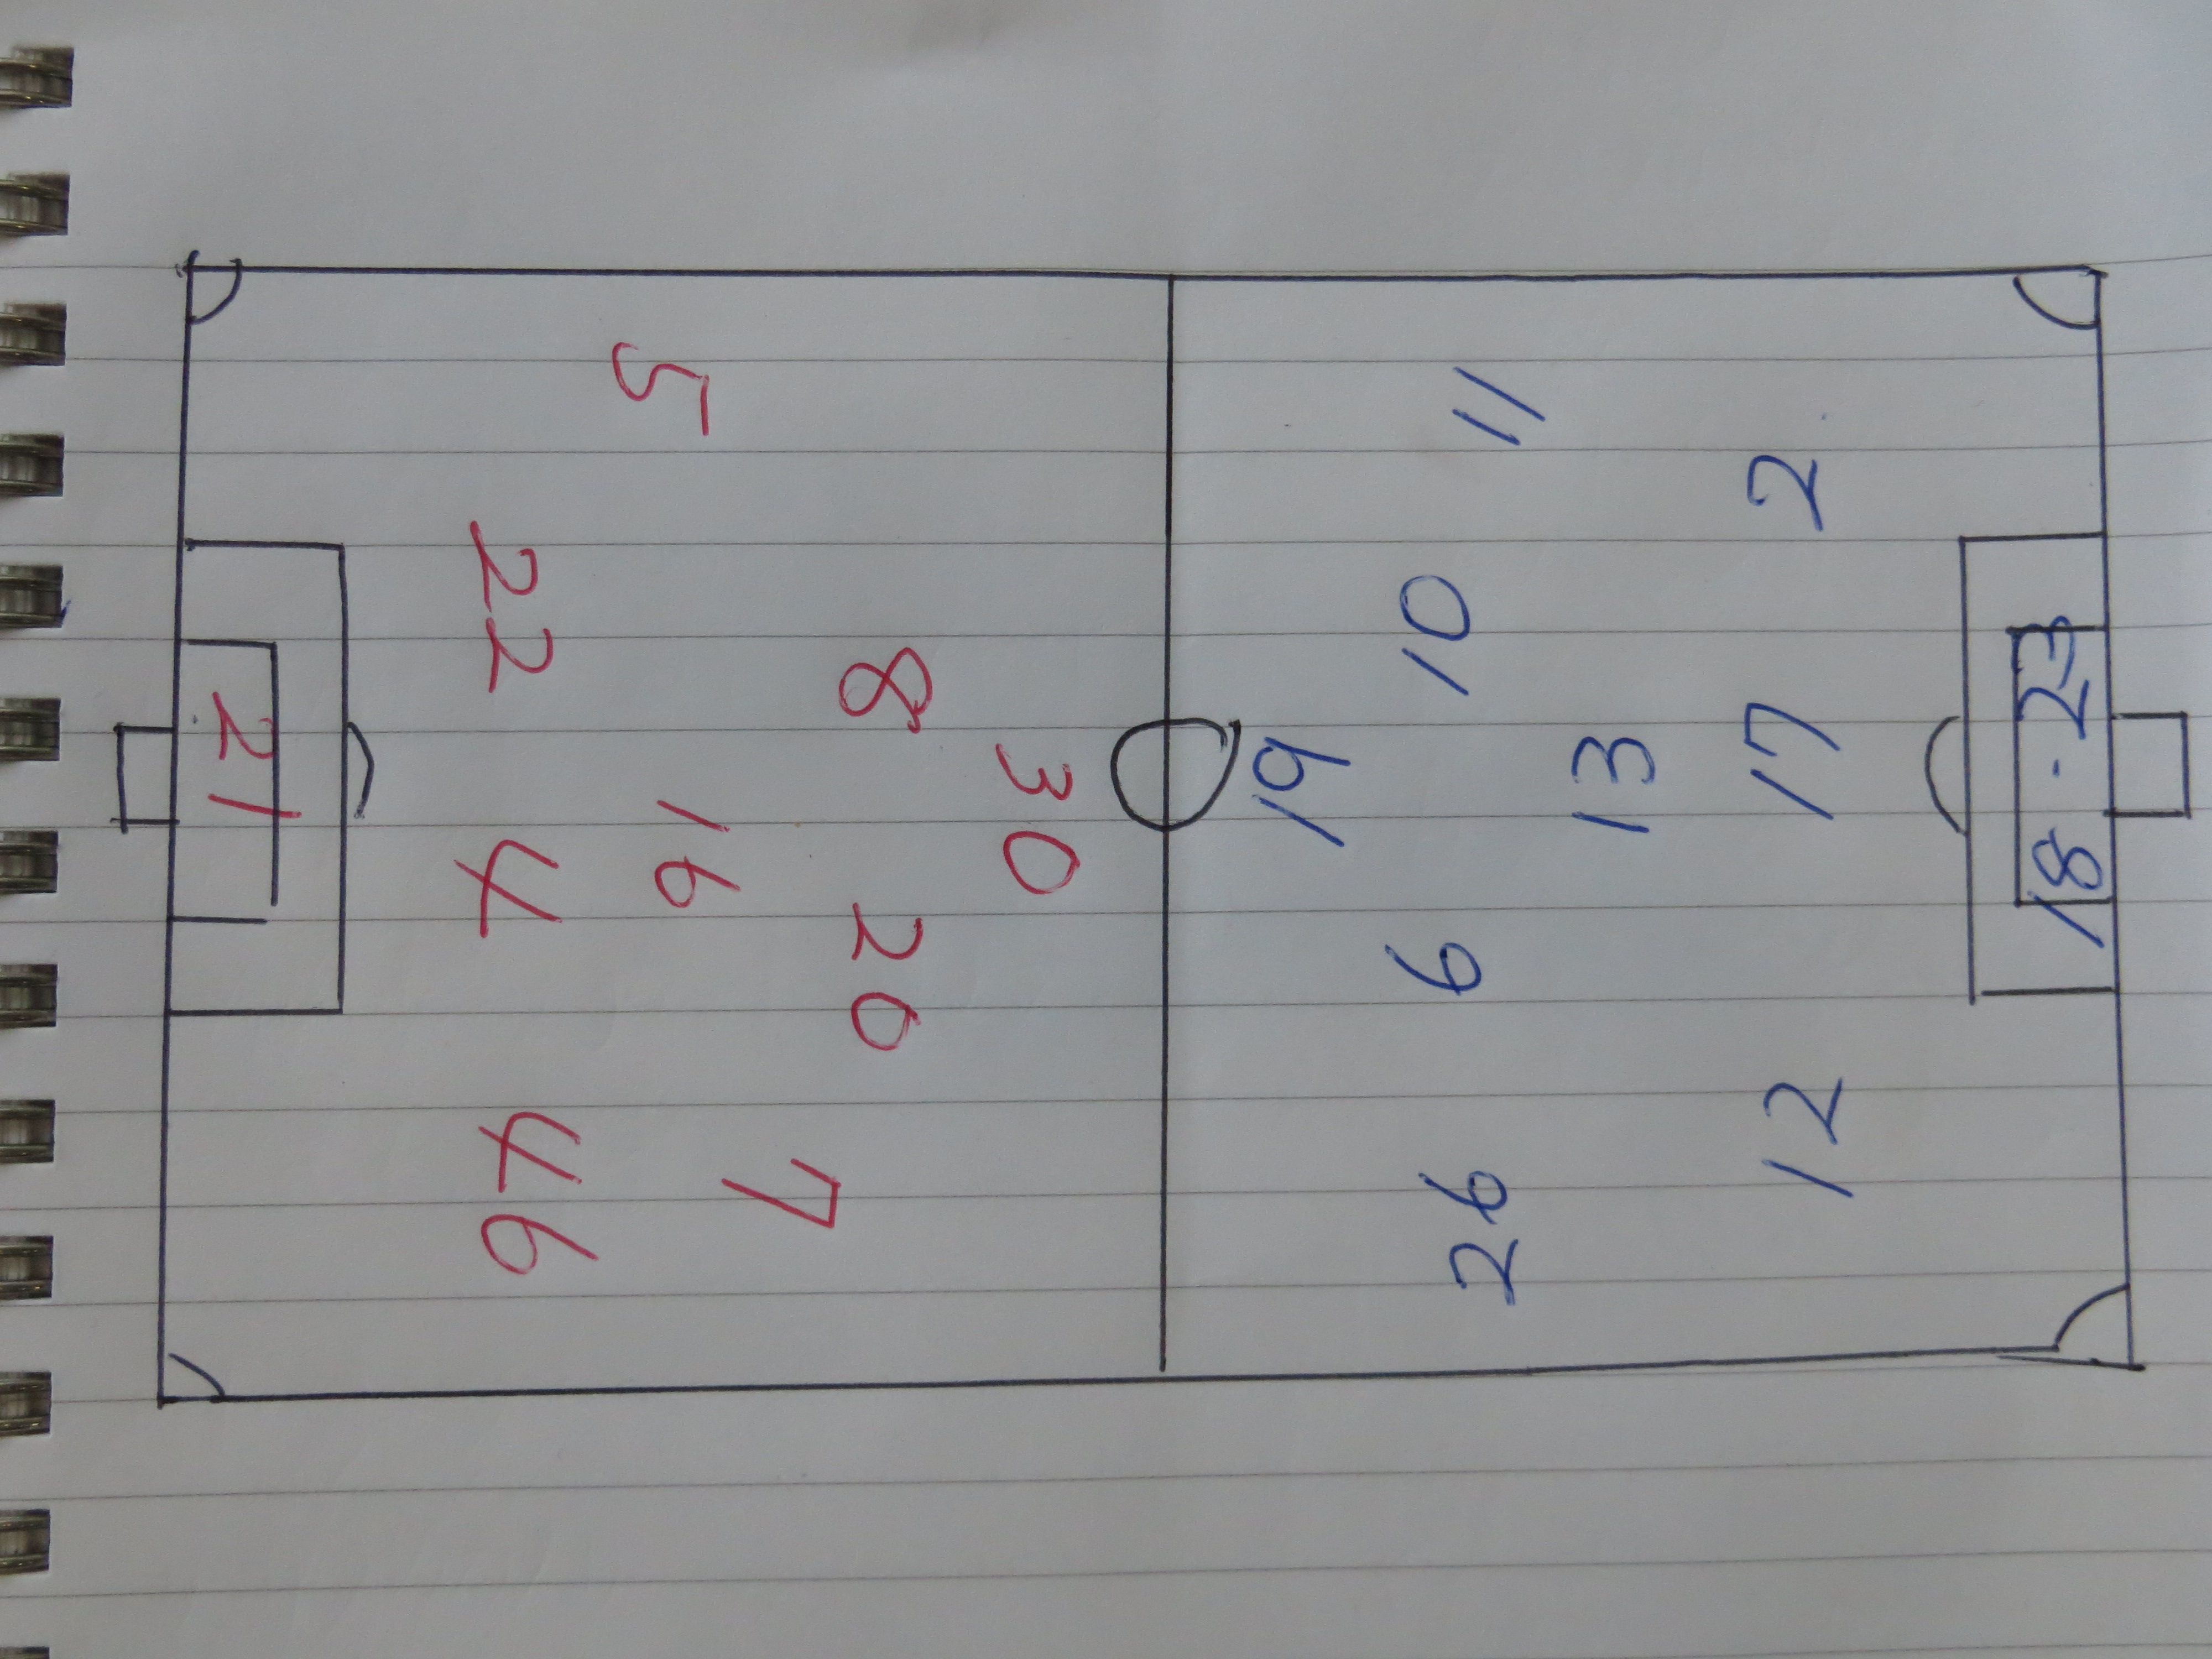 5
22
8
21
30
16
4
20
46
7
11
2
10
19
13
17
18 - 23
6
26
12